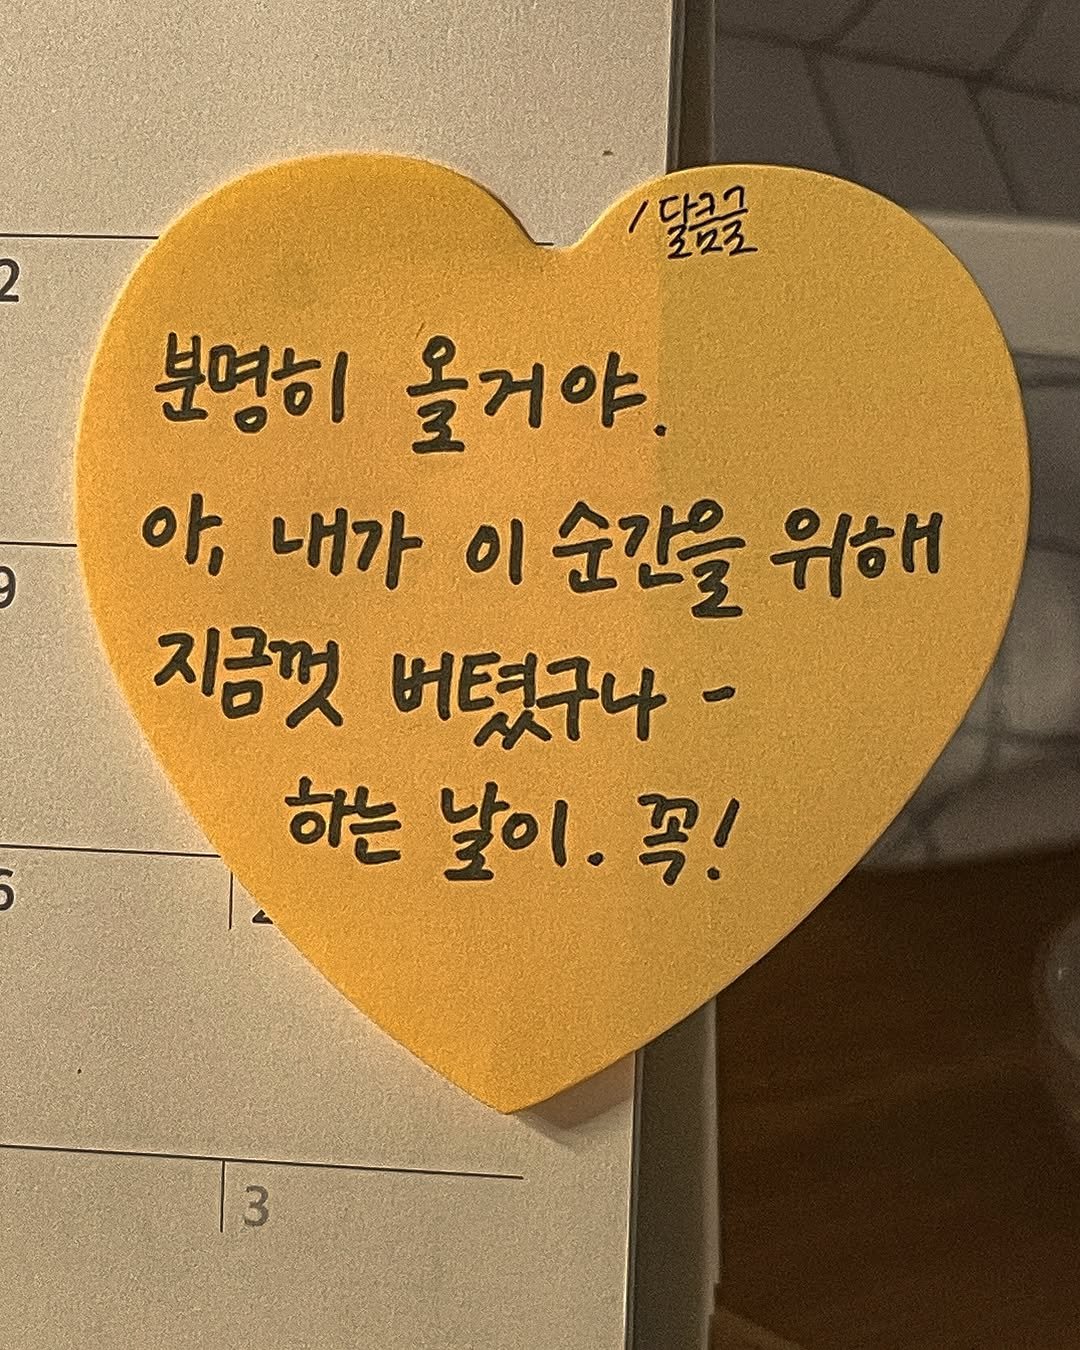 /달콤글
분명히 올거야.
아, 내가 이 순간을 위해
지금껏 버텼구나 -
하는 날이. 꼭!
2
9
6
3